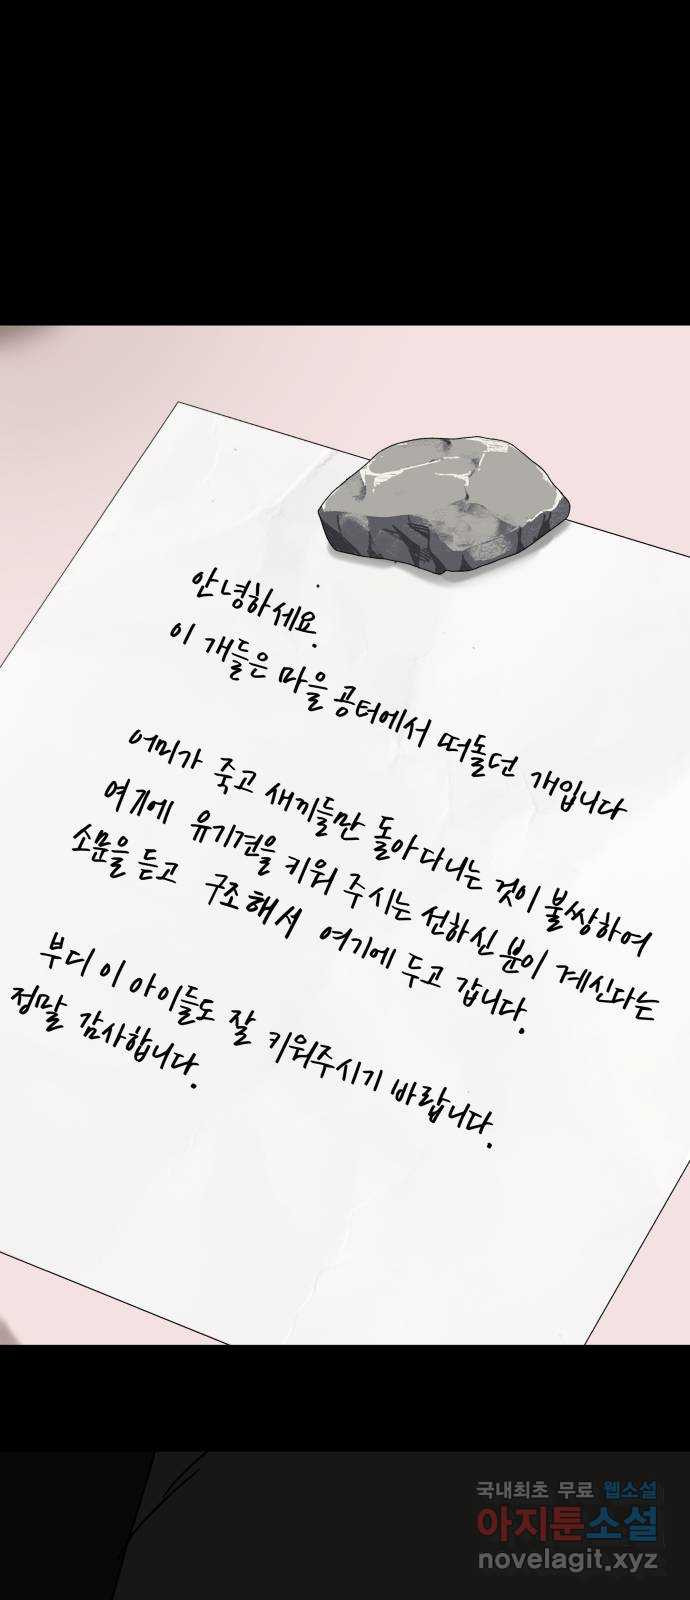 안녕하세요.
이 개들은 마을 공터에서 떠돌던 개입니다
어미가 죽고 새끼들만 돌아다니는 것이 불쌍하여
여기에 유기견을 키워 주시는 선하신 분이 계신다는
소문을 듣고 구조해서 여기에 두고 갑니다.
부디 이 아이들도 잘 키워주시기 바랍니다.
정말 감사합니다.
국내최초 무료 웹소설
아지툰소설
novelagit.xyz